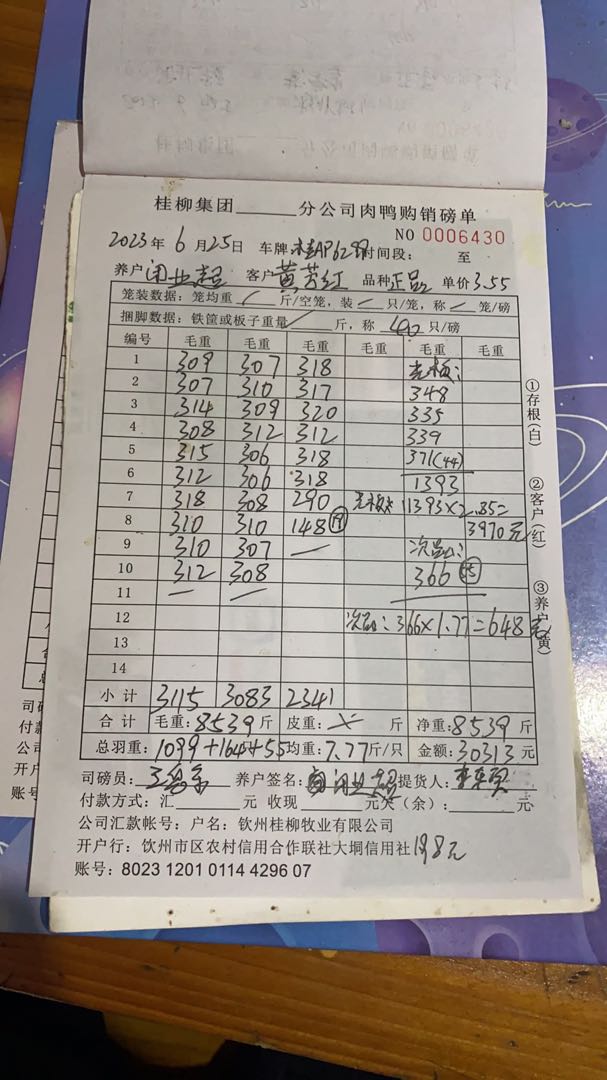 桂柳集团______分公司肉鸭购销磅单
NO 0006430
2023年 6月25日 车牌 时间段: 至
养户 闭业超 客户 黄芳红 品种 正品 单价3.55
笼装数据:笼均重 / 斤/空笼,装 / 只/笼,称 / 笼/磅
捆脚数据:铁筐或板子重量 / 斤,称 40 只/磅
编号 毛重 毛重 毛重 毛重 毛重 毛重
1 309 307 318
2 307 310 317 348
3 314 309 320 335
4 308 312 312 339
5 315 306 318 371(44)
6 312 306 318 1393
7 318 308 290 1393×2.85=
8 310 310 148⑲ 3970元
9 310 307 — 次品:
10 312 308 366
11 — —
12 次品:366×1.77=648元
13
14
小计 3115 3083 2341
合计 毛重:8539斤 皮重: 斤 净重:8539斤
总羽重:1099+164+55 均重:7.77斤/只 金额:30313元
司磅员: 养户签名: 闭业超 提货人:
付款方式:汇______元 收现______元欠(余):______元
公司汇款帐号:户名:钦州桂柳牧业有限公司
开户行:钦州市区农村信用合作联社大垌信用社
账号:8023 1201 0114 4296 07
①存根(白)
②客户(红)
③养户(黄)